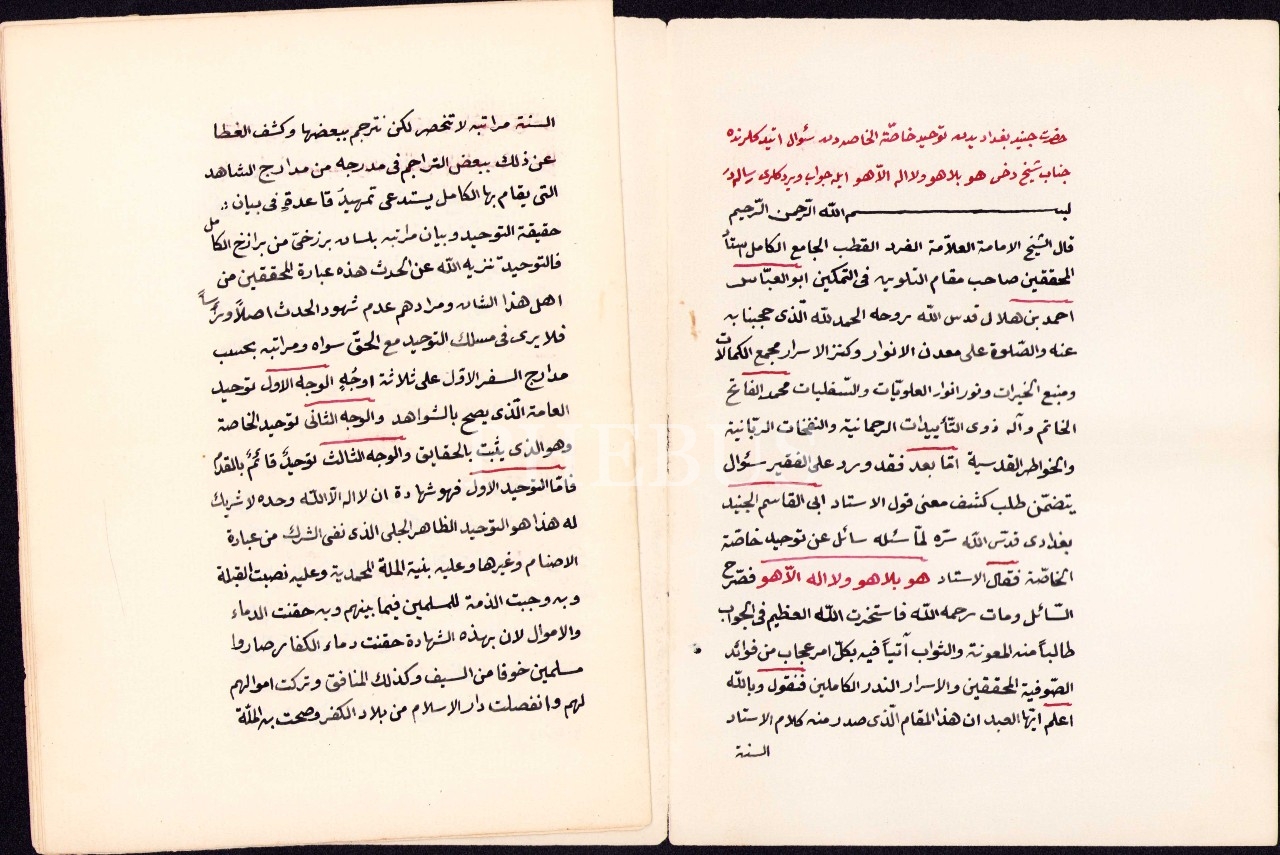 حضرت جنيد بغداديدن توحيد خاصّة الخاصه دن سئوال اتيدكلرنده
جناب شيخ دخى هو بلا هو ولا اله الّا هو ايله جواب ويردكلرى رساله در
بســـم الله الرّحمن الرّحيم
قال الشيخ الامامة العلّامة الفرد القطب الجامع الكامل استاذ
المحققين صاحب مقام التلوين فى التمكين ابو العبّاس
احمد بن هلال قدس الله بروحه الحمد لله الّذى حجبنا به
عنه والصّلوة على معدن الانوار وكنز الاسرار مجمع الكمالات
ومنبع الخيرات ونور انوار العلويّات والسّفليات محمد الفاتح
الخاتم وآله ذوى التّأييدات الرحمانية والنفخات الربّانية
والخواطر القدسية امّا بعد فقد ورد على الفقير سئوال
يتضمّن طلب كشف معنى قول الاستاد ابى القاسم الجنيد
بغدادى قدّس الله سرّه لمّا سُئله سائل عن توحيد خاصّة
الخاصّة فقال الاستاد هو بلا هو ولا اله الّا هو فصرخ
السّائل ومات رحمه الله فاستخرت الله العظيم فى الجواب
طالباً منه المعونة والثواب آتياً فيه بكلّ امر عجاب من فوائد
الصّوفية المحققين والاسرار الندر الكاملين فنقول وبالله
اعلم ايّها العبد ان هذا المقام الّذى صدر منه كلام الاستاد
السنة
السنة مراتبه لا تنحصر لكن نترجم ببعضها وكشف الغطا
عن ذلك ببعض التراجم فى مدرجه من مدارج الشاهد
التى يقام بها الكامل يستدعى تمهيدُ قاعدةٍ فى بيان
حقيقة التوحيد وبيان مراتبه بلسان برزخىّ من برازخ الكامل
فالتوحيد تنزيه الله عن الحدث هذه عبارة المحققين من
اهل هذا الشان ومرادهم عدم شهود الحدث اصلاً ورأساً
فلا يرى فى مسلك التوحيد مع الحقّ سواه ومراتبه بحسب
مدارج السفر الاوّل على ثلاثة اوجُهٍ الوجه الاول توحيد
العامة الّذى يصح بالشواهد والوجه الثانى توحيد الخاصة
وهو الذى يثبت بالحقايق والوجه الثالث توحيدٌ قائمٌ بالقدم
فامّا التوحيد الاول فهو شهادة ان لا اله الّا الله وحده لا شريك
له هذا هو التوحيد الظاهر الجلى الذى نفى الشرك من عبارة
الاصنام وغيرها وعليه بنية الملة المحمدية وعليه نصبت القبلة
وبه وجبت الذمة للمسلمين فيما بينهم وبه حقنت الدماء
والاموال لان بهذه الشهادة حقنت دماء الكفار صاروا
مسلمين خوفا من السيف وكذلك المنافق وتركت اموالهم
لهم وانفصلت دار الاسلام من بلاد الكفر وصحت به الملّة
PHEBUS